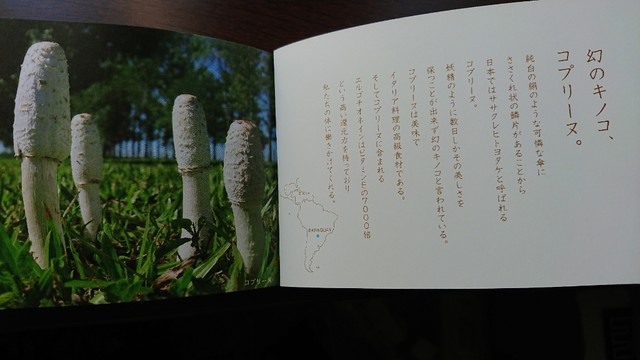 幻のキノコ、
コプリーヌ。
純白の絹のような可憐な傘に
ささくれ状の鱗片があることから
日本ではササクレヒトヨタケと呼ばれる
コプリーヌ。
妖精のように数日しかその美しさを
保つことが出来ず幻のキノコと言われている。
コプリーヌは美味で
イタリア料理の高級食材である。
そしてコプリーヌに含まれる
エルゴチオネインはビタミンEの7000倍
という高い還元力を持っており
私たちの体に働きかけてくれる。
PARAGUAY
コプリーヌ